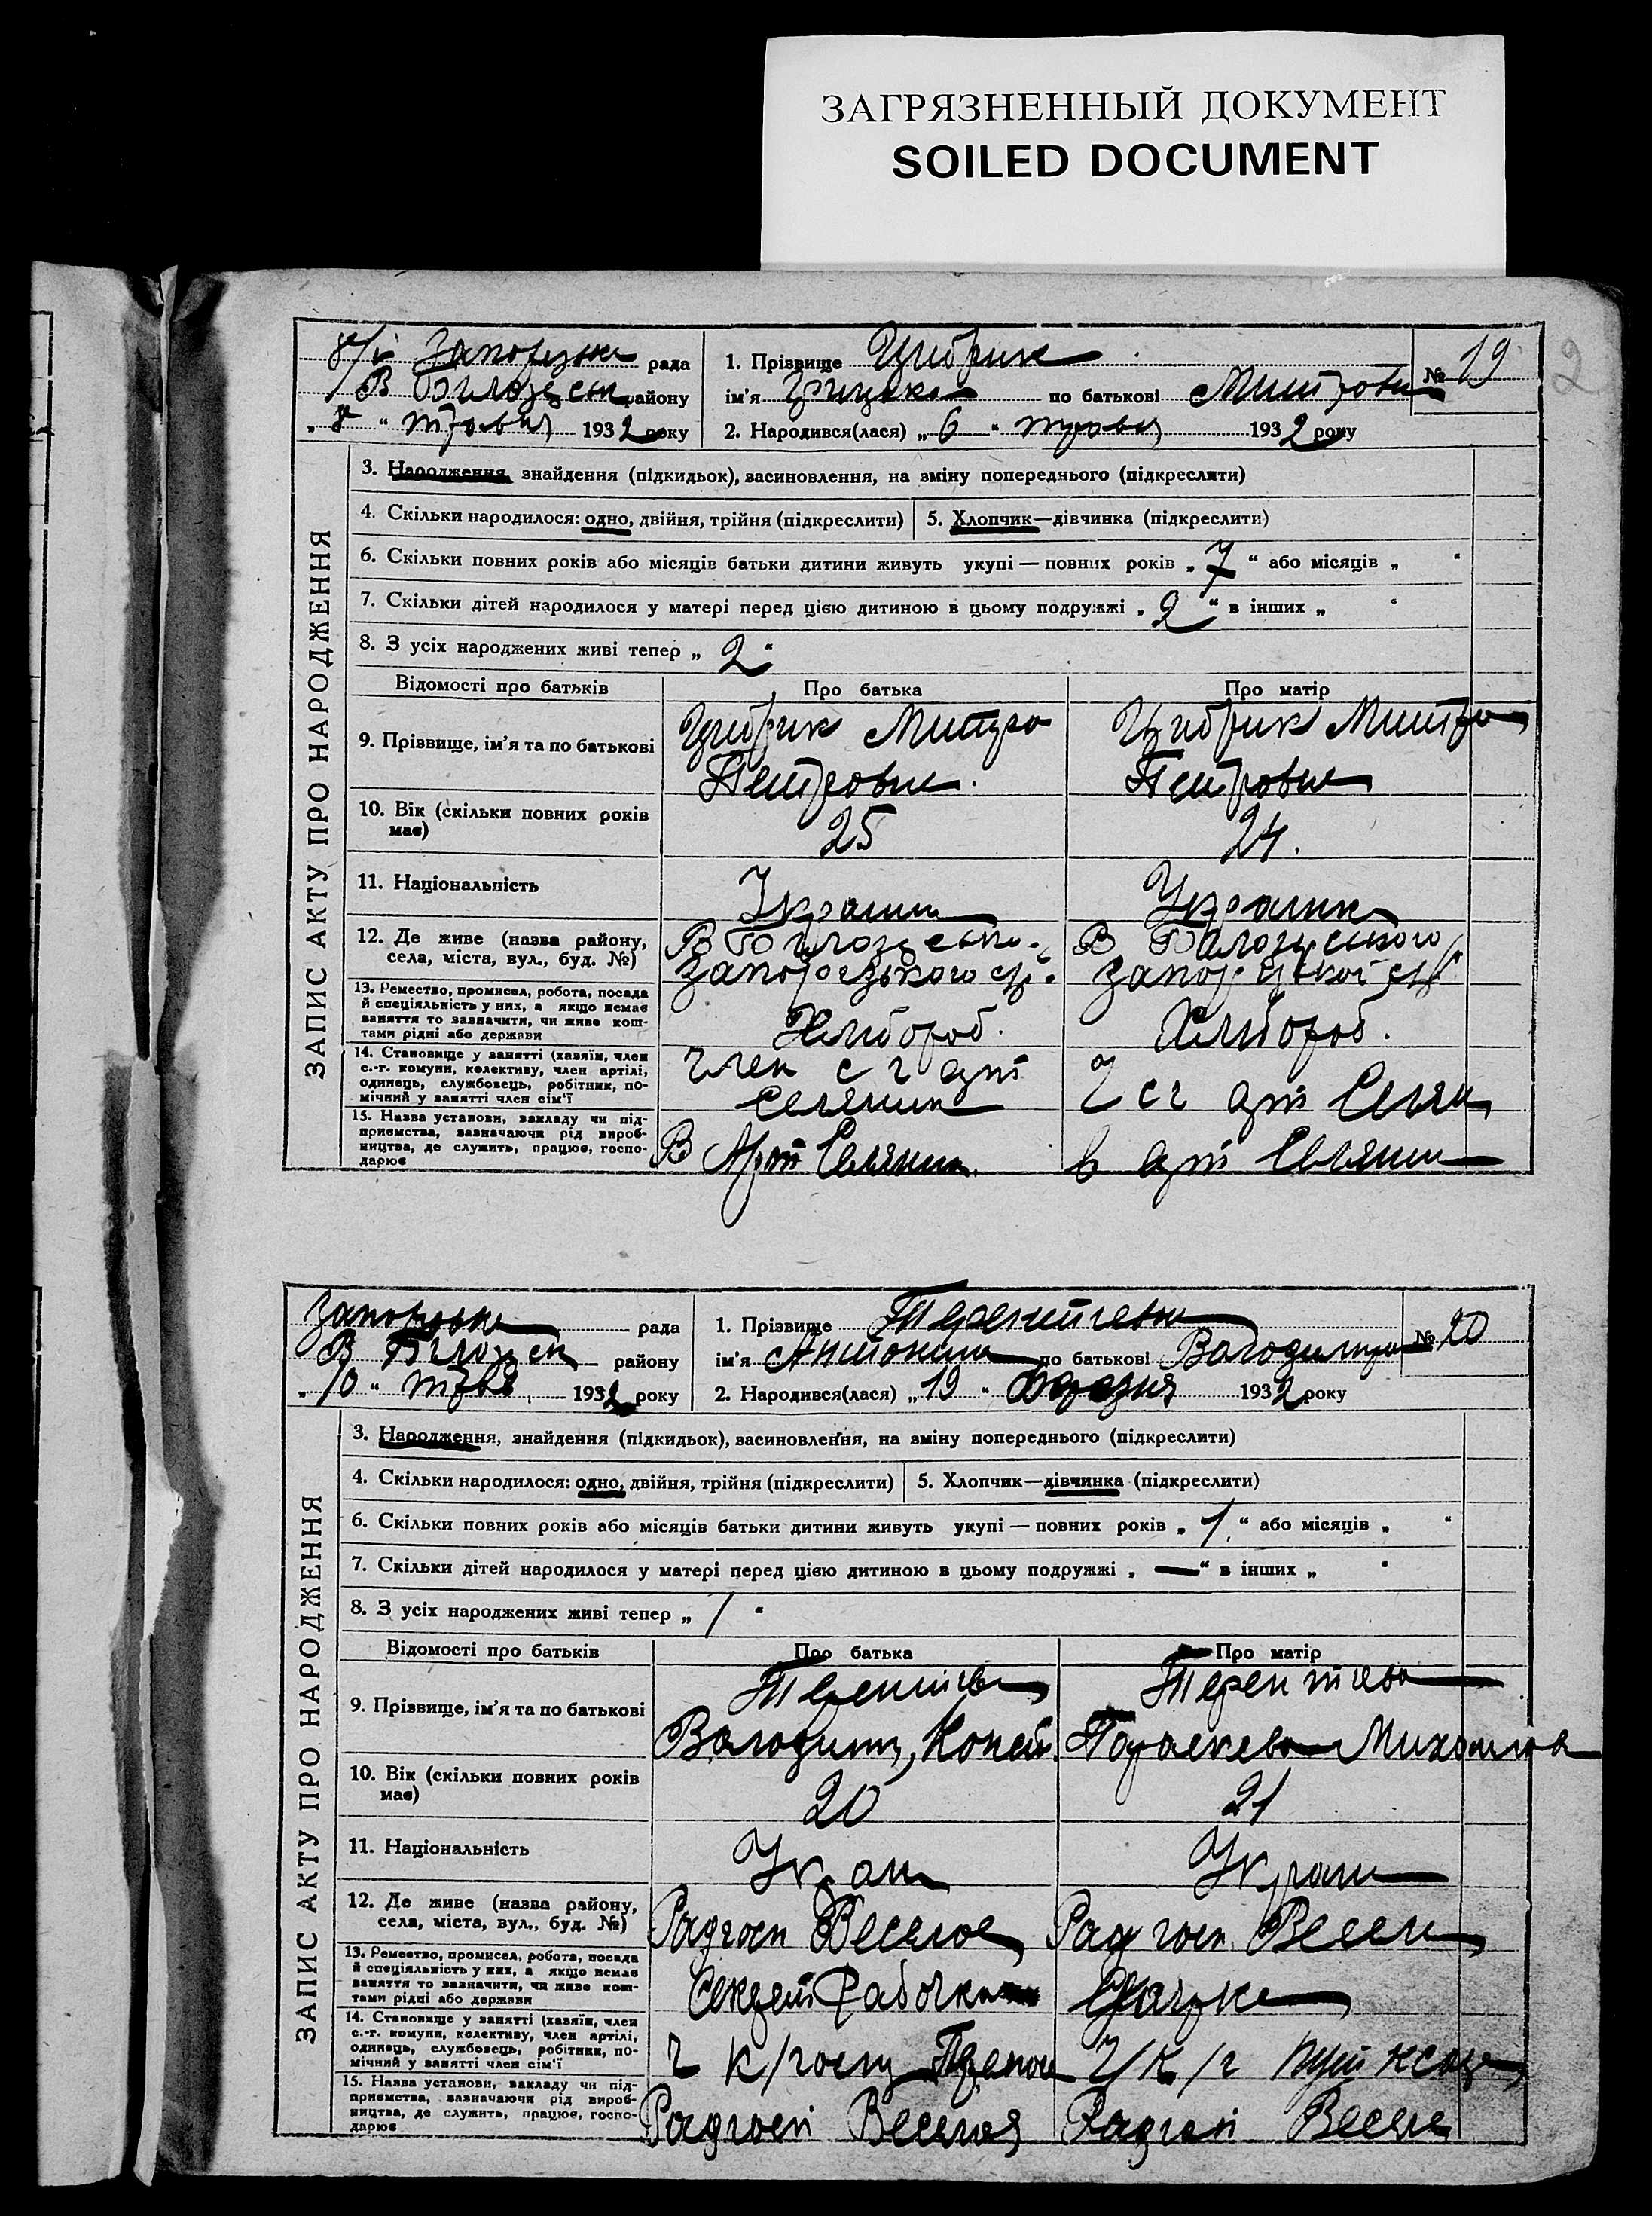 ЗАГРЯЗНЕННЫЙ ДОКУМЕНТ
SOILED DOCUMENT
2
рада
В Білозерськ району
" 8 " травня 1932 року
1. Прізвище Цибрик № 19
ім'я Грицько по батькові Митрови
2. Народився(лася) „ 6 " травня 1932 року
ЗАПИС АКТУ ПРО НАРОДЖЕННЯ
3. Народження, знайдення (підкидьок), засиновлення, на зміну попереднього (підкреслити)
4. Скільки народилося: одно, двійня, трійня (підкреслити)
5. Хлопчик—дівчинка (підкреслити)
6. Скільки повних років або місяців батьки дитини живуть укупі — повних років „ 7 " або місяців „ "
7. Скільки дітей народилося у матері перед цією дитиною в цьому подружжі „ 2 " в інших „ "
8. З усіх народжених живі тепер „ 2 "
Відомості про батьків
Про батька
Про матір
9. Прізвище, ім'я та по батькові
Цибрик Митро
Петрович.
Цибрик Митро
Петрови
10. Вік (скільки повних років має)
25
24.
11. Національність
Украин
Украинк
12. Де живе (назва району,
села, міста, вул., буд. №)
В Білозерсько
Запорозького с/р.
В Білозерського
13. Ремество, промисел, робота, посада
й спеціяльність у них, а якщо немає
заняття то зазначити, чи живе кош-
тами рідні або держави
Хлибороб.
Хлибороб.
14. Становище у занятті (хазяїн, член
с.-г. комуни, колективу, член артілі,
одинець, службовець, робітник, по-
мічний у занятті член сім'ї
член с г арт
Селянин
Ч с г арт Селян
15. Назва установи, закладу чи під-
приємства, зазначаючи рід вироб-
ництва, де служить, працює, госпо-
дарює
В Арт Селянин.
в арт Селянин
рада
В Білозерськ району
" 10 " трвя 1932 року
1. Прізвище Терентьева № 20
ім'я Антонина по батькові Володимир
2. Народився(лася) „ 19 " березня 1932 року
ЗАПИС АКТУ ПРО НАРОДЖЕННЯ
3. Народження, знайдення (підкидьок), засиновлення, на зміну попереднього (підкреслити)
4. Скільки народилося: одно, двійня, трійня (підкреслити)
5. Хлопчик—дівчинка (підкреслити)
6. Скільки повних років або місяців батьки дитини живуть укупі — повних років „ 1 " або місяців „ "
7. Скільки дітей народилося у матері перед цією дитиною в цьому подружжі „ — " в інших „ "
8. З усіх народжених живі тепер „ 1 "
Відомості про батьків
Про батька
Про матір
9. Прізвище, ім'я та по батькові
Терентієв
Володимир
Терентиева
Параскева Михайлов
10. Вік (скільки повних років має)
20
21
11. Національність
Украин
Украин
12. Де живе (назва району,
села, міста, вул., буд. №)
Радгосп Веселое
Радгосп Весел
13. Ремество, промисел, робота, посада
й спеціяльність у них, а якщо немає
заняття то зазначити, чи живе кош-
тами рідні або держави
14. Становище у занятті (хазяїн, член
с.-г. комуни, колективу, член артілі,
одинець, службовець, робітник, по-
мічний у занятті член сім'ї
15. Назва установи, закладу чи під-
приємства, зазначаючи рід вироб-
ництва, де служить, працює, госпо-
дарює
Радгосп Веселоя
Радгосп Веселе